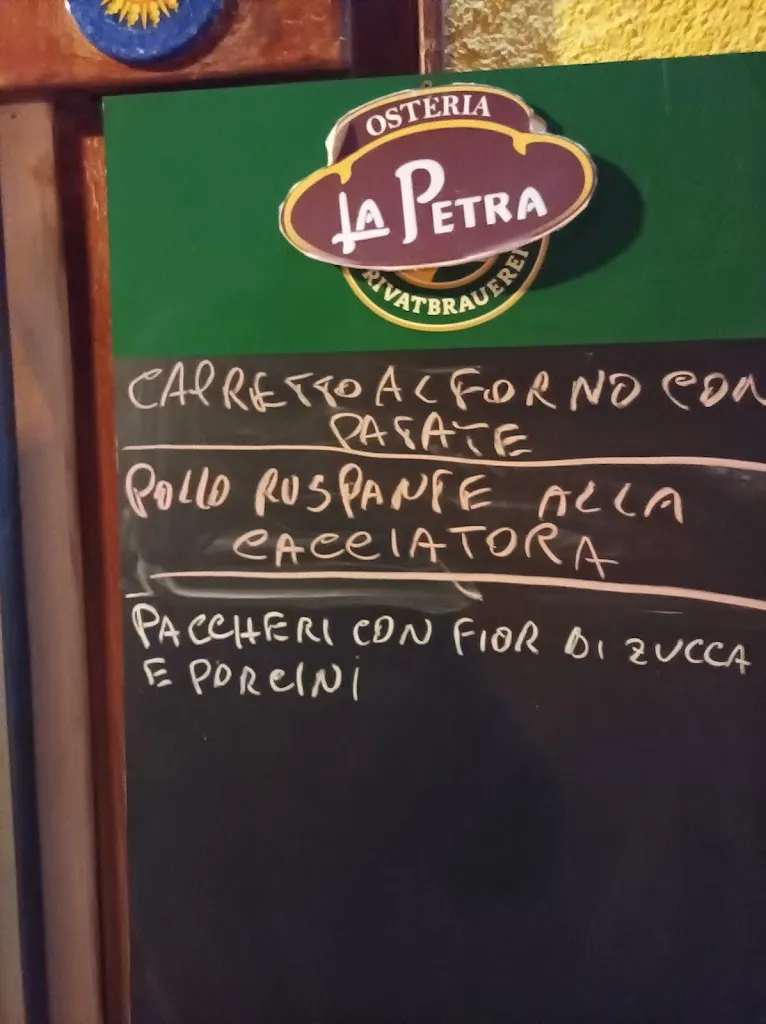 OSTERIA
LA PETRA
RIVATBRAUEREI
CAPRETTO AL FORNO CON
PATATE
POLLO RUSPANTE ALLA
CACCIATORA
PACCHERI CON FIOR DI ZUCCA
E PORCINI